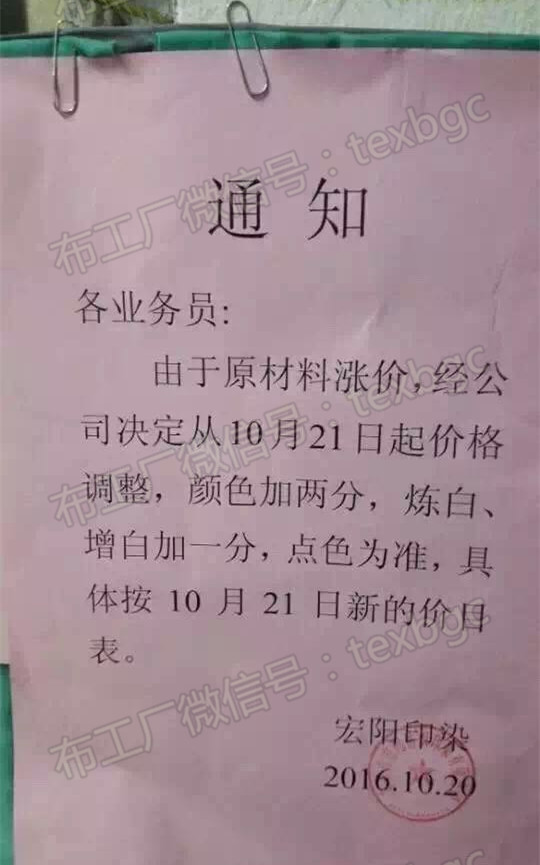 通 知
各业务员:
由于原材料涨价,经公
司决定从10月21日起价格
调整，颜色加两分，炼白、
增白加一分，点色为准，具
体按 10 月 21 日新的价目
表。
宏阳印染
2016.10.20
布工厂微信号：texbgc
布工厂微信号：texbgc
布工厂微信号：texbgc